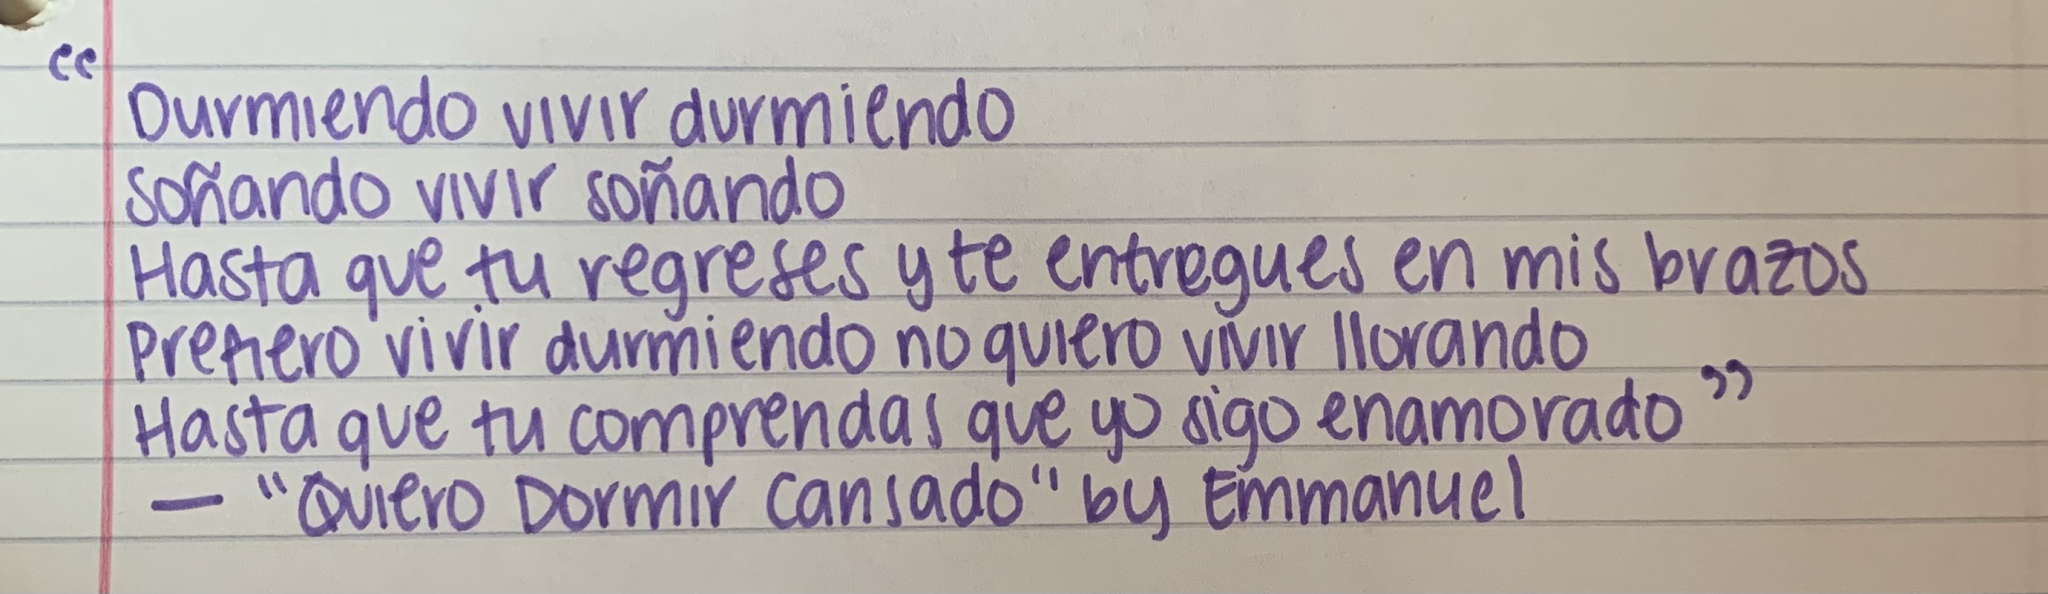 “
Durmiendo vivir durmiendo
soñando vivir soñando
Hasta que tu regreses y te entregues en mis brazos
Prefiero vivir durmiendo no quiero vivir llorando
Hasta que tu comprendas que yo sigo enamorado”
— "Quiero Dormir Cansado" by Emmanuel